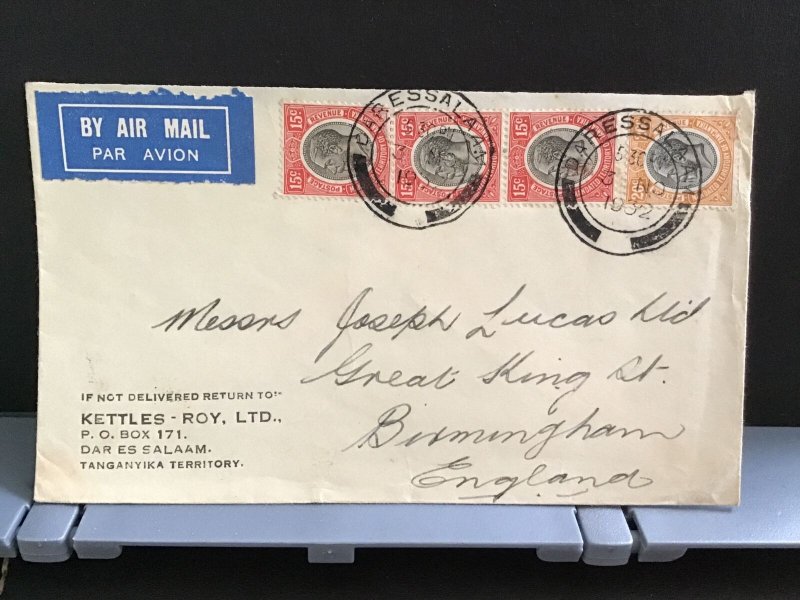 BY AIR MAIL
PAR AVION
15c REVENUE 15c POSTAGE
15c REVENUE
15c REVENUE 15c POSTAGE
REVENUE
DARESSALAAM
DARESSALAAM
530
3 NO
1932
Messrs Joseph Lucas Ltd
Great King St.
Birmingham
England
IF NOT DELIVERED RETURN TO:-
KETTLES-ROY, LTD.,
P.O. BOX 171.
DAR ES SALAAM.
TANGANYIKA TERRITORY.